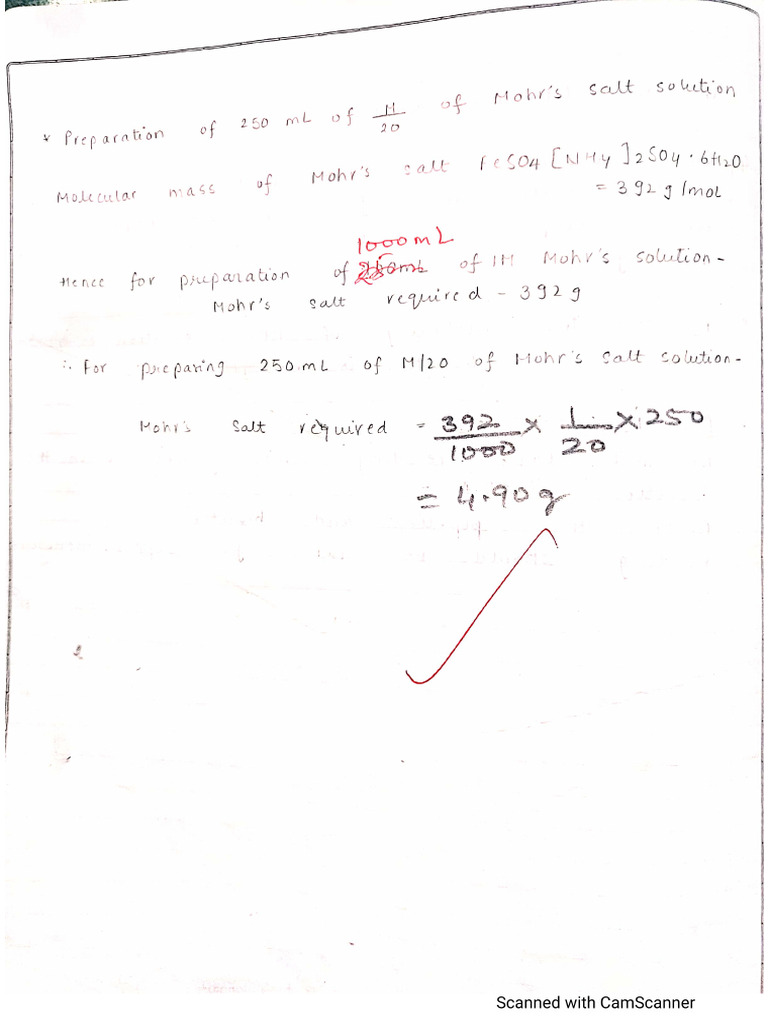 * Preparation of 250 mL of M/20 of Mohr's salt solution
Molecular mass of Mohr's salt FeSO4 [NH4]2SO4·6H2O
= 392 g/mol
1000mL
Hence for preparation of 250mL of 1M Mohr's solution -
Mohr's salt required - 392g
∴ For preparing 250mL of M/20 of Mohr's salt solution -
Mohr's Salt required = 392/1000 × 1/20 × 250
= 4.90 g
Scanned with CamScanner